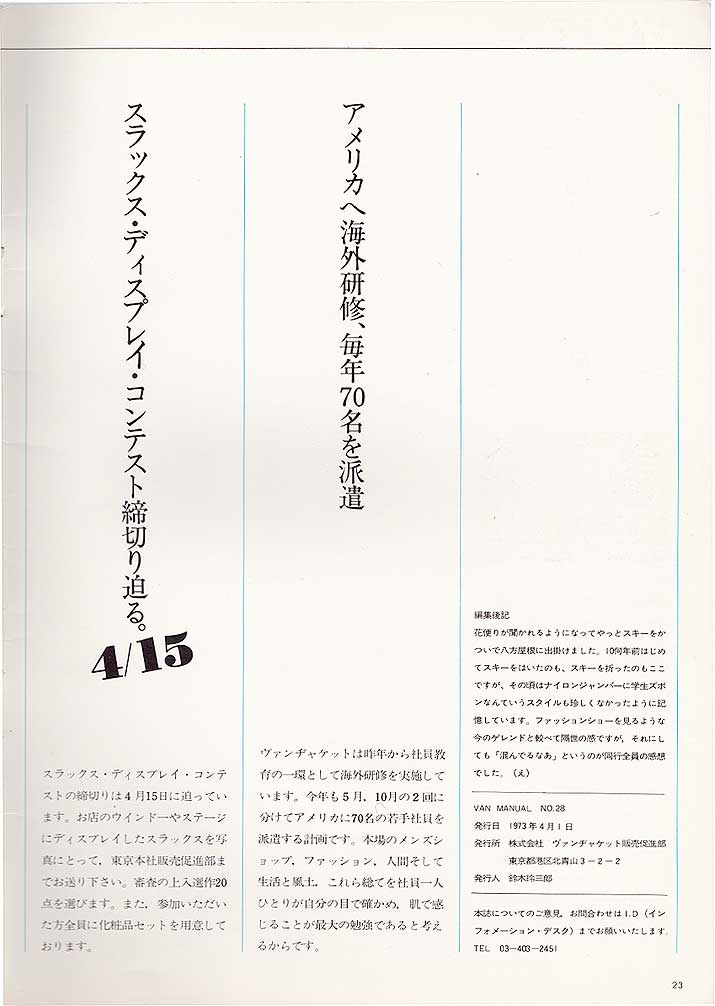 スラックス・ディスプレイ・コンテスト締切り迫る。
4/15
スラックス・ディスプレイ・コンテ
ストの締切りは4月15日に迫ってい
ます。お店のウインドーやステージ
にディスプレイしたスラックスを写
真にとって、東京本社販売促進部ま
でお送り下さい。審査の上入選作20
点を選びます。また、参加いただい
た方全員に化粧品セットを用意して
おります。
アメリカへ海外研修、毎年70名を派遣
ヴァンヂャケットは昨年から社員教
育の一環として海外研修を実施して
います。今年も5月、10月の2回に
分けてアメリカに70名の若手社員を
派遣する計画です。本場のメンズシ
ョップ、ファッション、人間そして
生活と風土、これら総てを社員一人
ひとりが自分の目で確かめ、肌で感
じることが最大の勉強であると考え
るからです。
編集後記
花便りが聞かれるようになってやっとスキーをか
ついで八方屋根に出掛けました。10何年前はじめ
てスキーをはいたのも、スキーを折ったのもここ
ですが、その頃はナイロンジャンパーに学生ズボ
ンなんていうスタイルも珍しくなかったように記
憶しています。ファッションショーを見るような
今のゲレンドと較べて隔世の感ですが、それにし
ても「混んでるなあ」というのが同行全員の感想
でした。（え）
VAN MANUAL NO.28
発行日 1973年4月1日
発行所 株式会社 ヴァンヂャケット販売促進部
東京都港区北青山3−2−2
発行人 鈴木玲三郎
本誌についてのご意見、お問合わせはI.D（イン
フォメーション・デスク）までお願いいたします。
TEL 03−403−2451
23